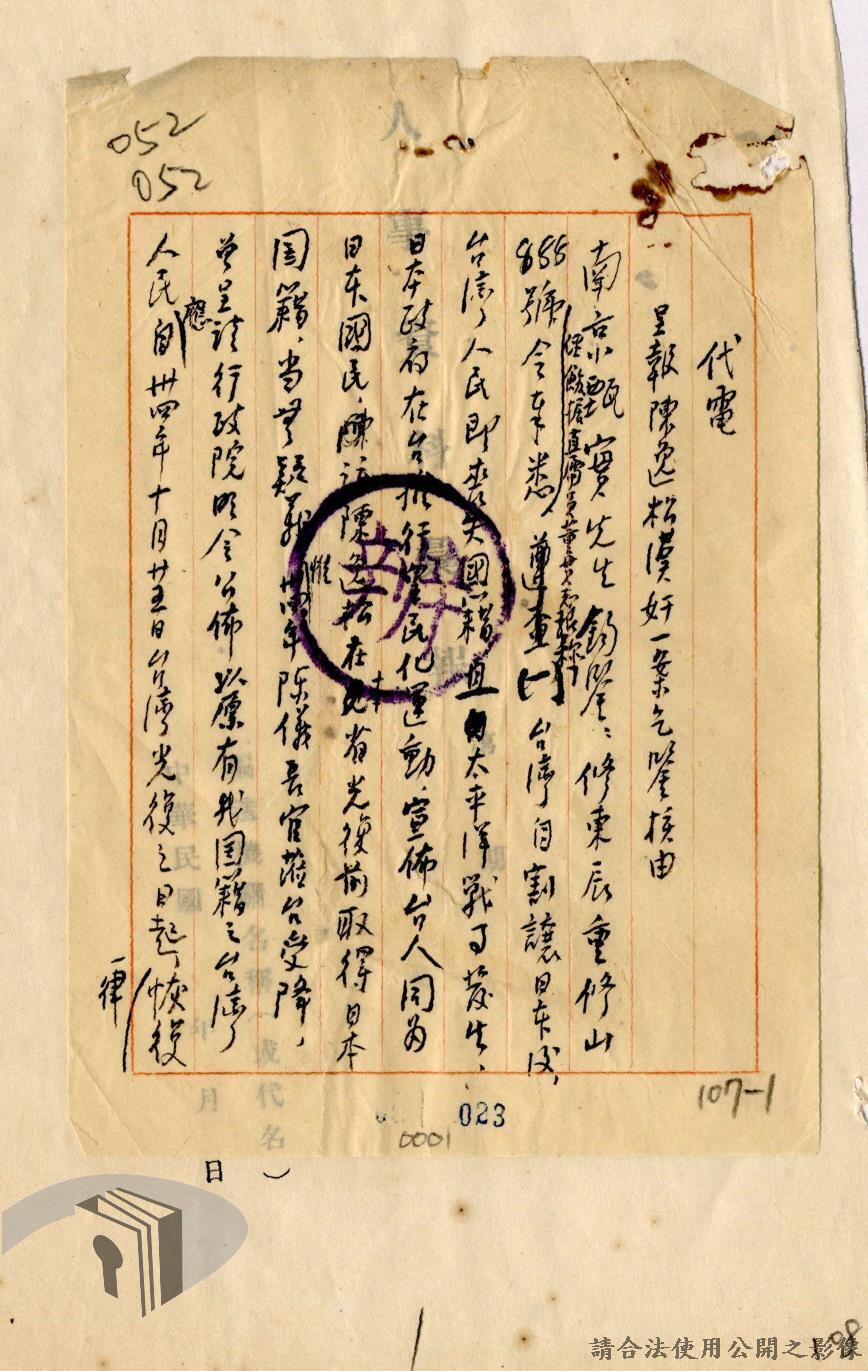 052
052
代電
呈報陳逸松漢奸一案乞鑒核由
南京甄實先生鈞鑒：修東辰重修山
855號令奉悉遵查㈠台灣自割讓日本後，
台灣人民即喪失國籍直自太平洋戰事發生、
日本政府在台推行皇民化運動、宣佈台人同為
日本國民，陳逸松在本省光復前取得日本
國籍，當無疑義惟卅四年陳儀長官蒞台受降，
曾呈請行政院明令公佈以原有我國籍之台灣
人民應自卅四年十月廿五日台灣光復之日起，恢復
一律
023
0001
107-1
日）
98
請合法使用公開之影像